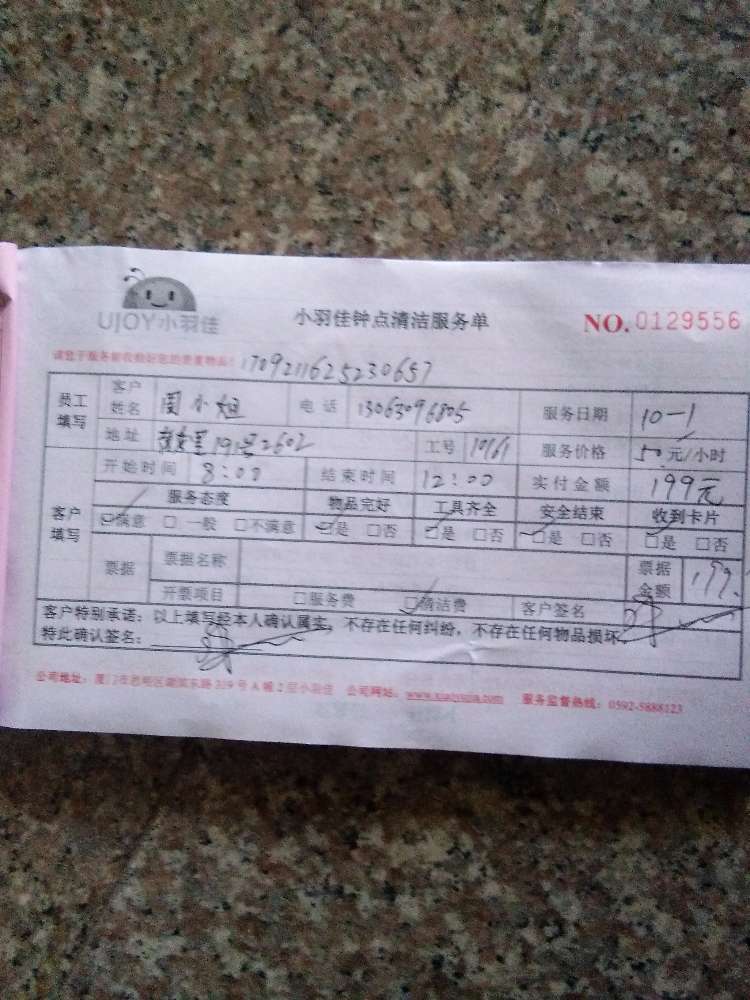 UJOY小羽佳
小羽佳钟点清洁服务单
NO.0129556
请您于服务前收拾好您的贵重物品! 1709211625230657
员工填写 客户姓名 周小姐 电话 13063096805 服务日期 10-1
地址 191号2602 工号 10161 服务价格 50元/小时
客户填写 开始时间 8:00 结束时间 12:00 实付金额 199元
服务态度 物品完好 工具齐全 安全结束 收到卡片
☑满意 □一般 □不满意 ☑是 □否 ☑是 □否 ☑是 □否 ☑是 □否
票据 票据名称 票据金额 199.
开票项目 □服务费 ☑清洁费 客户签名
客户特别承诺:以上填写经本人确认属实,不存在任何纠纷,不存在任何物品损坏.
特此确认签名:
公司地址:厦门市思明区湖滨东路319号A幢2层小羽佳 公司网站: www.xiaoyujia.com 服务监督热线:0592-5888123